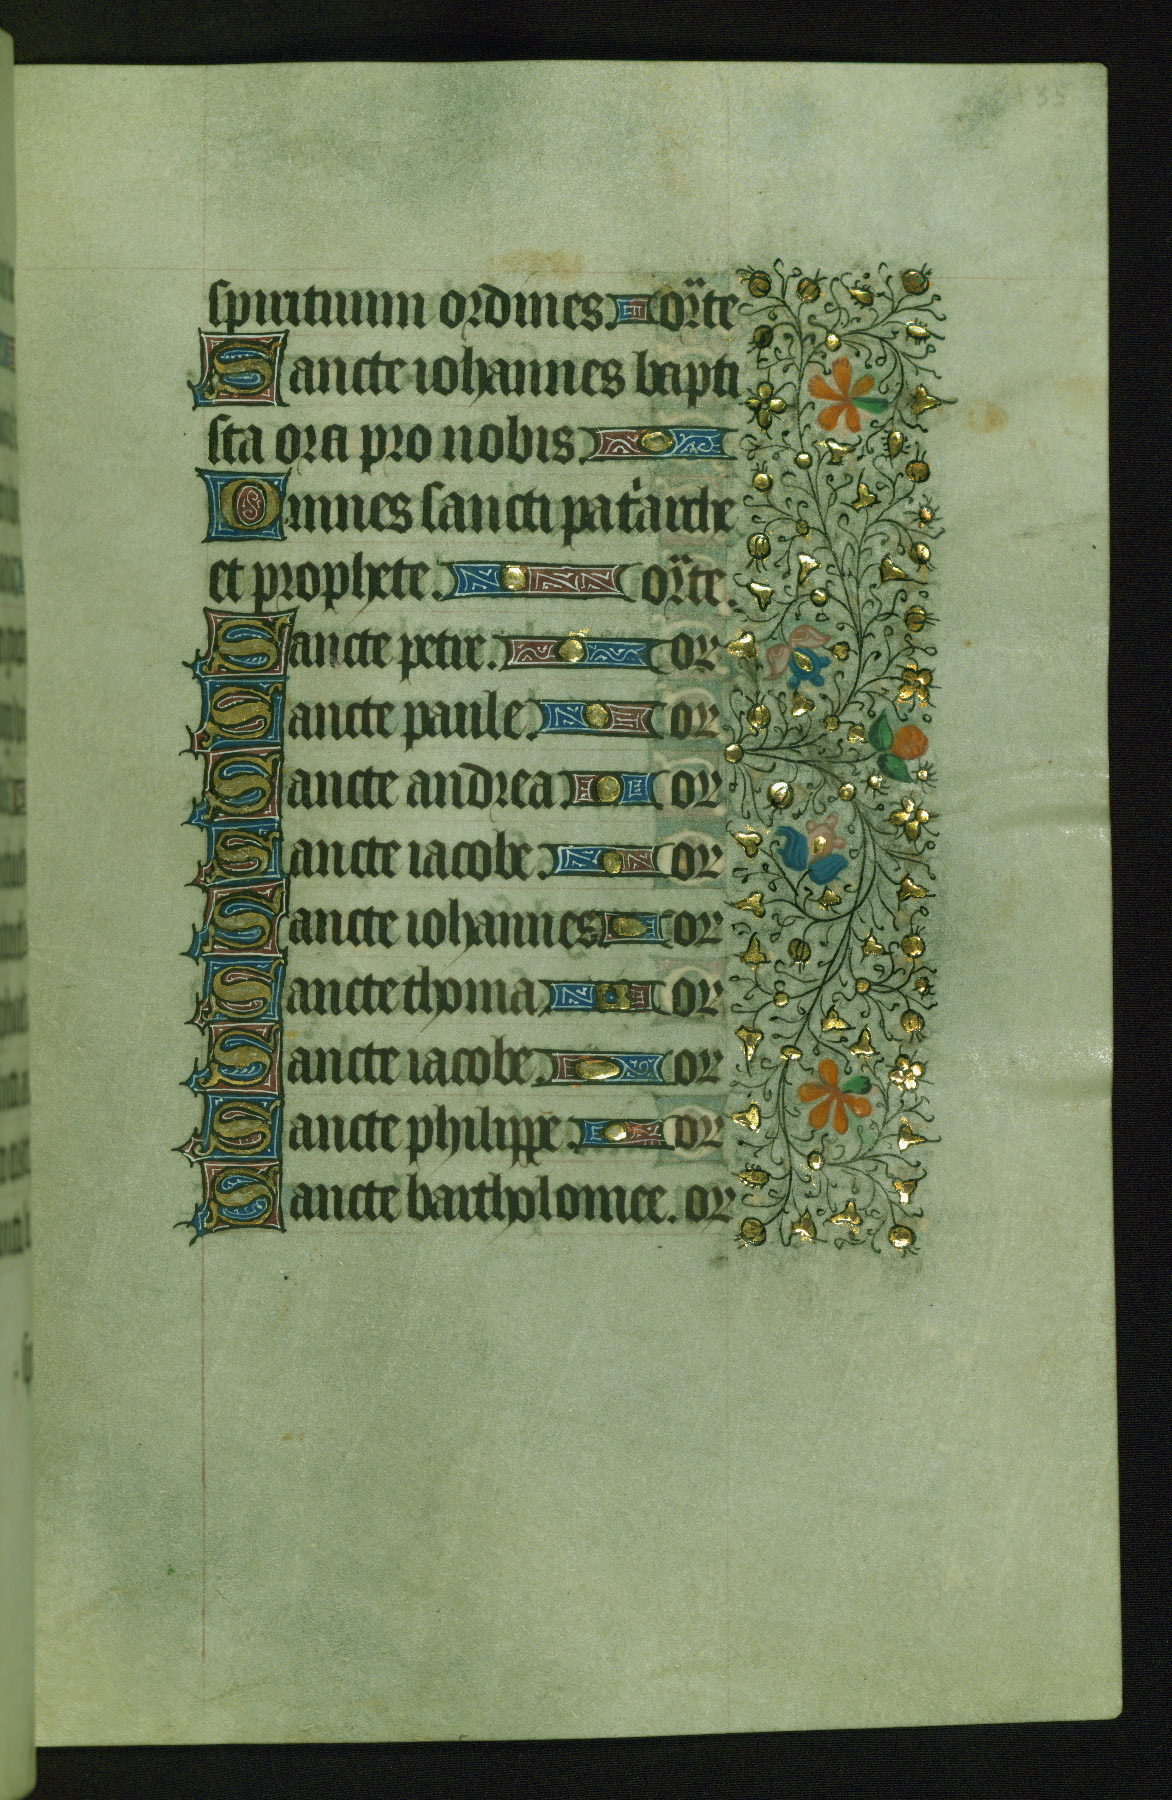 135
spirituum ordines. or̄te
Sancte iohannes bapti
sta ora pro nobis.
Omnes sancti pat̄arche
et prophete. or̄te.
Sancte petre. or
Sancte paule. or
Sancte andrea or
Sancte iacobe. or
Sancte iohannes or
Sancte thoma. or
Sancte iacobe. or
Sancte philippe. or
Sancte bartholomee. or